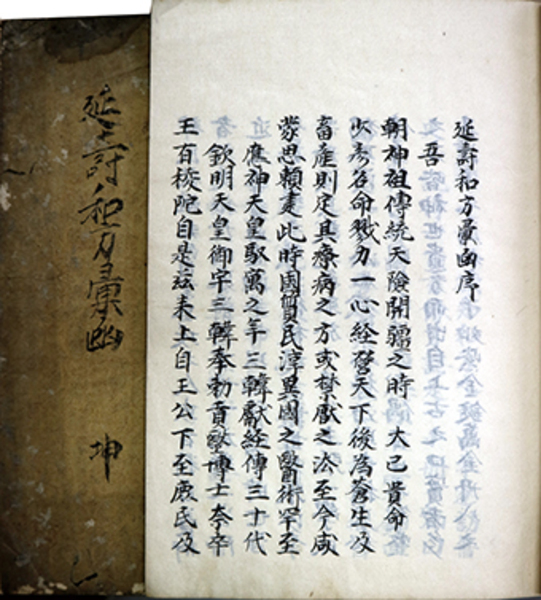 延壽和方彙函序
吾
朝神祖傳統天險開疆之時 大己貴命
少彦名命戮力一心経營天下後為蒼生及
畜産則定其療病之方或禁厭之法至今咸
蒙恩頼此時國質民淳異國之醫術罕至
應神天皇馭寓之年三韓獻経傳三十代
欽明天皇御宇三韓奉勅貢醫博士奈率
王百陀自是茲来上自王公下至庶民及
延壽和方彙函 坤